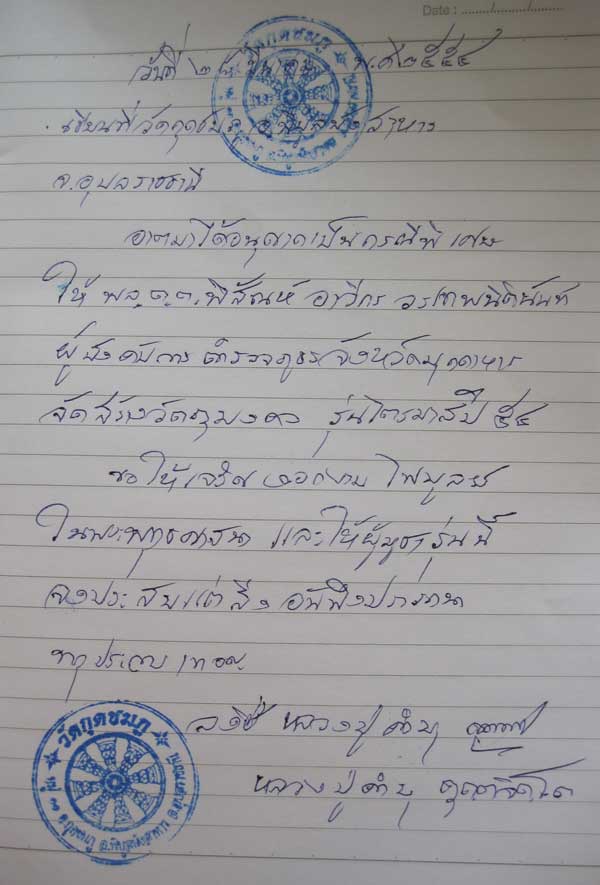 Date : ......../............/............
วันที่ ๒๘ มีนาคม พ.ศ ๒๕๕๔
เขียนที่วัดกุดชมภู อ.พิบูลมังสาหาร
จ.อุบลราชธานี
อาตมาได้อนุญาตเป็นกรณีพิเศษ
ให้ พล.ต.ต.พิสัณห์ อาวีกร วรเทพนิตินันท์
ผู้บังคับการตำรวจภูธรจังหวัดมุกดาหาร
จัดสร้างวัตถุมงคล รุ่นไตรมาสปี ๕๔
ขอให้เจริญงอกงาม ไพบูลย์
ในพระพุทธศาสนา และให้ผู้บูชารุ่นนี้
จงประสบแต่สิ่งอันพึงปรารถนา
ทุกประการ เทอญ
ลงชื่อ หลวงปู่คำบุ
หลวงปู่คำบุ คุตฺตจิตฺโต
วัดกุดชมภู